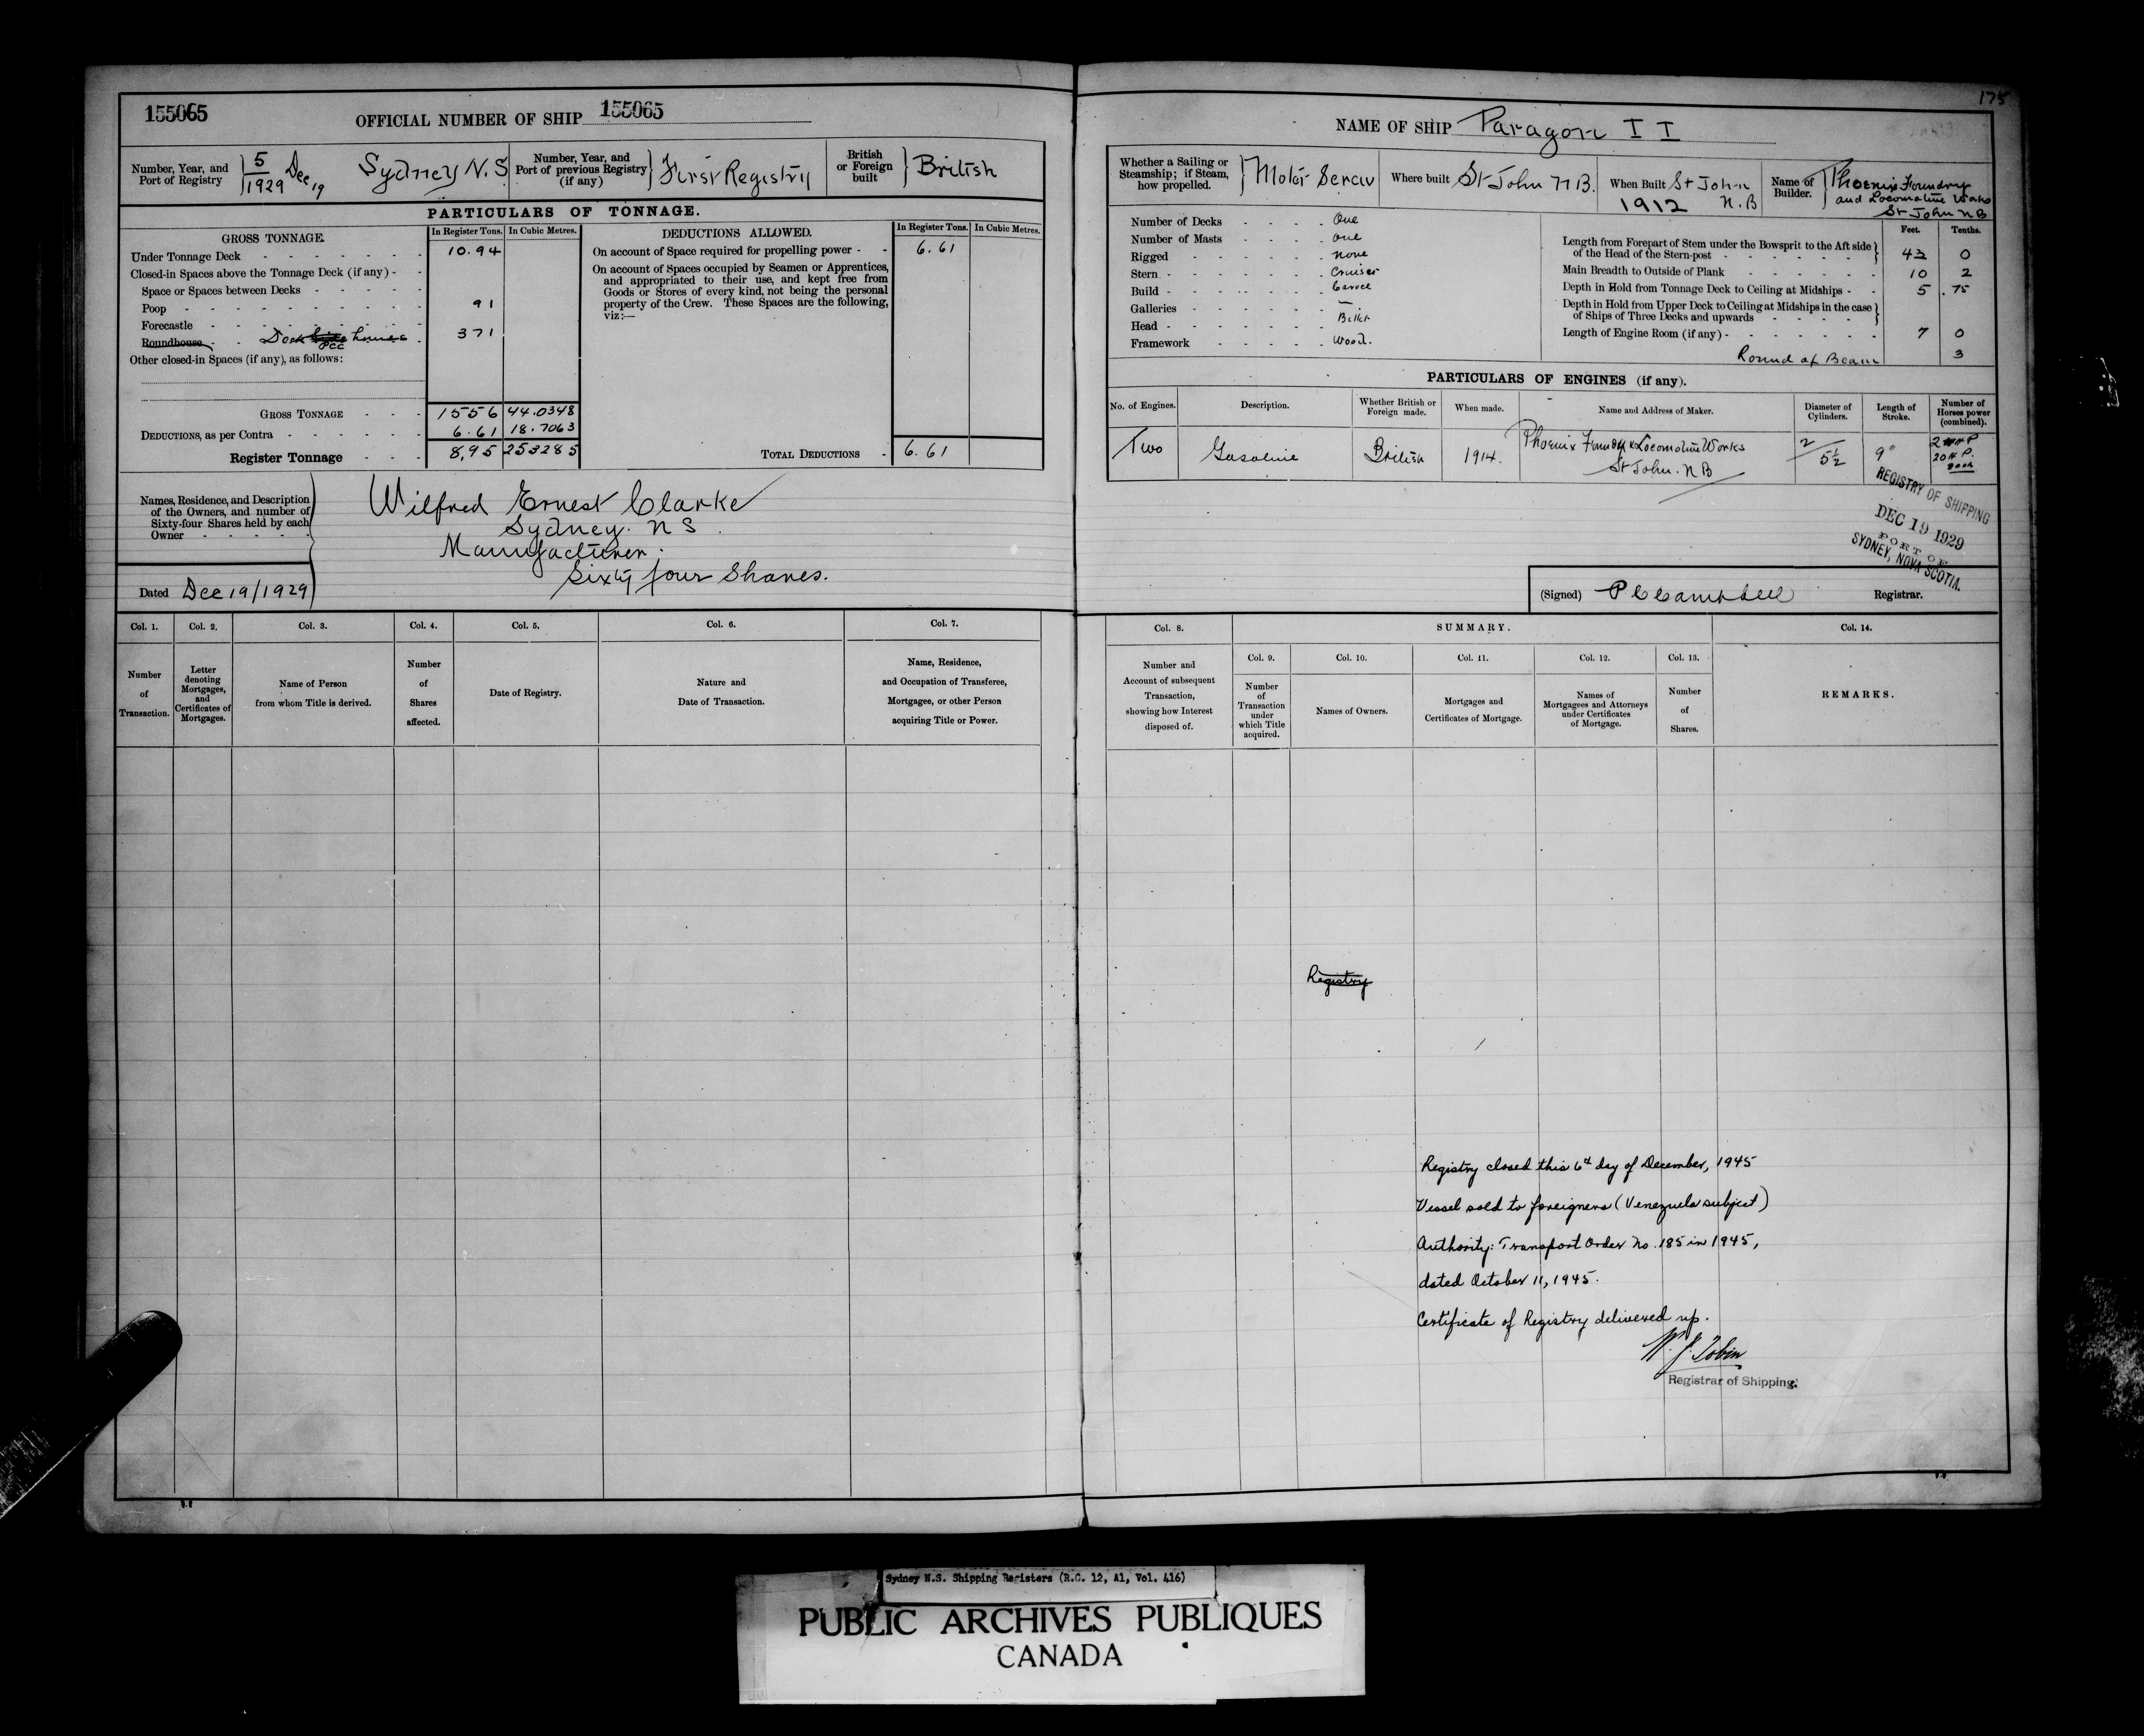 175
155065
OFFICIAL NUMBER OF SHIP 155065
NAME OF SHIP Paragon II
Number, Year, and Port of Registry
5/1929 Dec 19 Sydney N.S
Number, Year, and Port of previous Registry (if any)
First Registry
British or Foreign built
British
Whether a Sailing or Steamship; if Steam, how propelled.
Motor Screw
Where built St John N.B.
When Built St John N.B 1912
Name of Builder.
Phoenix Foundry
and Locomotive Works
St John N B
PARTICULARS OF TONNAGE.
GROSS TONNAGE.
In Register Tons.
In Cubic Metres.
Under Tonnage Deck 10.94
Closed-in Spaces above the Tonnage Deck (if any)
Space or Spaces between Decks
Poop 91
Forecastle
Roundhouse Deck houses 371
PCC
Other closed-in Spaces (if any), as follows:
GROSS TONNAGE 1556 44.0348
DEDUCTIONS, as per Contra 6.61 18.7063
Register Tonnage 8,95 253285
DEDUCTIONS ALLOWED.
In Register Tons.
In Cubic Metres.
On account of Space required for propelling power 6.61
On account of Spaces occupied by Seamen or Apprentices,
and appropriated to their use, and kept free from
Goods or Stores of every kind, not being the personal
property of the Crew. These Spaces are the following,
viz:—
TOTAL DEDUCTIONS 6.61
Number of Decks One
Number of Masts One
Rigged None
Stern Cruiser
Build
Galleries —
Head
Framework Wood.
Feet. Tenths.
Length from Forepart of Stem under the Bowsprit to the Aft side
of the Head of the Stern-post 43 0
Main Breadth to Outside of Plank 10 2
Depth in Hold from Tonnage Deck to Ceiling at Midships 5 .75
Depth in Hold from Upper Deck to Ceiling at Midships in the case
of Ships of Three Decks and upwards
Length of Engine Room (if any) 7 0
Round of Beam 3
PARTICULARS OF ENGINES (if any).
No. of Engines.
Description.
Whether British or Foreign made.
When made.
Name and Address of Maker.
Diameter of Cylinders.
Length of Stroke.
Number of Horses power (combined).
Two
Gasoline
British
1914.
Phoenix Foundry & Locomotive Works
St John. N B
2
5½
9"
20 H P.
REGISTRY OF SHIPPING
DEC 19 1929
PORT OF
SYDNEY, NOVA SCOTIA.
Names, Residence, and Description
of the Owners, and number of
Sixty-four Shares held by each
Owner
Wilfred Ernest Clarke
Sydney. N S
Manufacturer.
Sixty four Shares.
Dated Dec 19/1929
(Signed) P C Campbell Registrar.
Col. 1.
Col. 2.
Col. 3.
Col. 4.
Col. 5.
Col. 6.
Col. 7.
Number of Transaction.
Letter denoting Mortgages, and Certificates of Mortgages.
Name of Person from whom Title is derived.
Number of Shares affected.
Date of Registry.
Nature and Date of Transaction.
Name, Residence, and Occupation of Transferee, Mortgagee, or other Person acquiring Title or Power.
Col. 8.
SUMMARY.
Col. 14.
Col. 9.
Col. 10.
Col. 11.
Col. 12.
Col. 13.
Number and Account of subsequent Transaction, showing how Interest disposed of.
Number of Transaction under which Title acquired.
Names of Owners.
Mortgages and Certificates of Mortgage.
Names of Mortgagees and Attorneys under Certificates of Mortgage.
Number of Shares.
REMARKS.
Registry
Registry closed this 6th day of December, 1945
Vessel sold to foreigners (Venezuela subject)
Authority: Transport Order No. 185 in 1945,
dated October 11, 1945.
Certificate of Registry delivered up.
W. J. Tobin
Registrar of Shipping.
Sydney N.S. Shipping Registers (R.G. 12, A1, Vol. 416)
PUBLIC ARCHIVES PUBLIQUES
CANADA